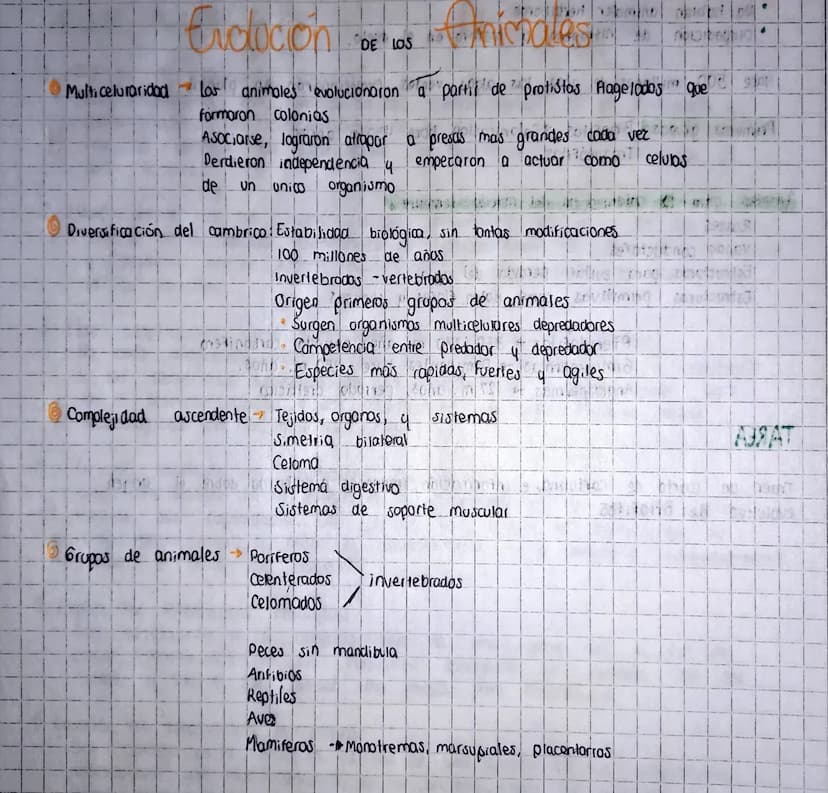 Evolución DE LOS Animales
Multiceluraridad → Los animales evolucionaron a partir de protistas flagelados que
formaron colonias
Asociarse, lograron atrapar a presas mas grandes cada vez
Perdieron independencia y empezaron a actuar como celulas
de un unico organismo
Diversificación del cambrico: Estabilidad biológica, sin tantas modificaciones
100 millones de años
Invertebrados - vertebrados
Origen primeros grupos de animales
• Surgen organismos multicelulares depredadores
• Competencia entre predador y depredador
• Especies más rapidas, fuertes y agiles
Complejidad ascendente → Tejidos, organos, y sistemas
Simetria bilateral
Celoma
Sistema digestivo
Sistemas de soporte muscular
TAREA
Grupos de animales → Poriferos
Celentérados invertebrados
Celomados
Peces sin mandibula
Anfibios
Reptiles
Aves
Mamiferos → Monotremas, marsupiales, placentarios